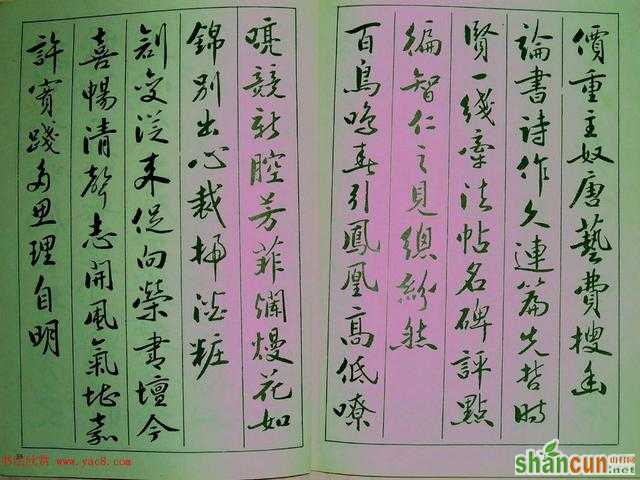 價重主奴唐藝費搜出
論書詩作久連篇先哲時
賢一綫牽法帖名碑評點
徧智仁之見總紛然
百鳥鳴春引鳳凰高低嘹
喨競新腔芳菲爛熳花如
錦別出心裁掃澹粧
創變從來促向榮書壇今
喜暢清聲志開風氣堪嘉
許實踐多思理自明
书法欣赏 www.yac8.com
shancun
山村网
.net